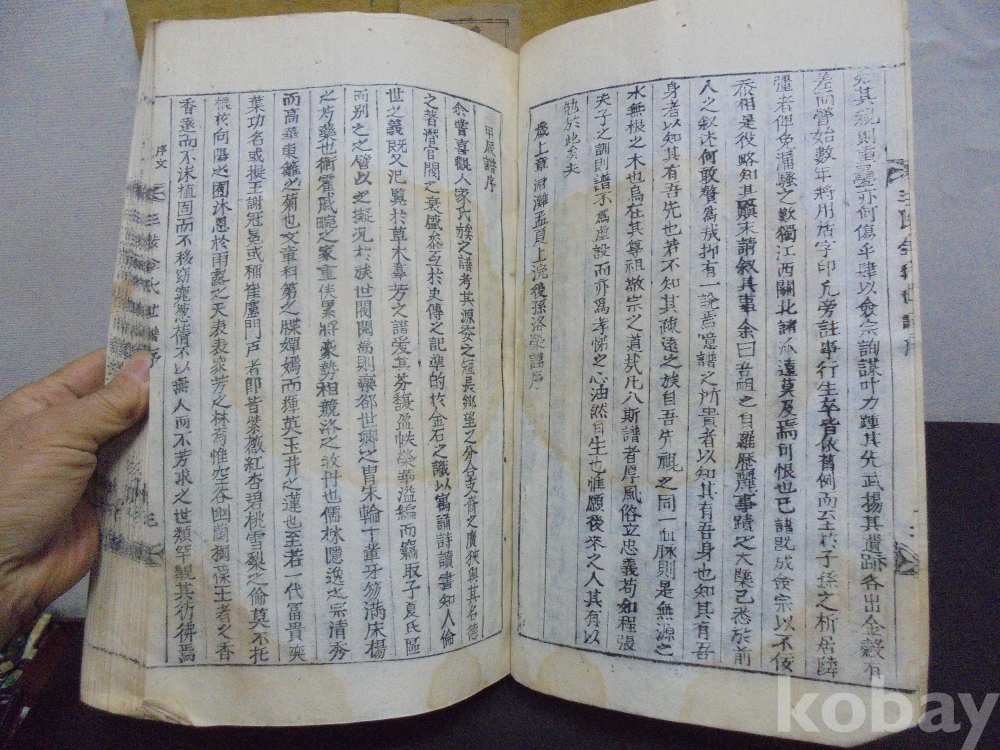 知其親則重 亦何傷乎肆以僉宗詢謀叶力踵其先武揚其遺蹟各出金穀有
差而營始數年將用活字印凡旁註事行生卒皆依舊例而至於子孫之析居隣
疆者俾免漏騷之歎獨江西關北諸派遠莫及焉可恨也已譜旣成僉宗以不佞
忝相是役略知其顚末請敘其事余曰吾祖之自羅歷麗事蹟之大槩已悉於前
人之敘述何敢贅焉哉抑有一論焉噫譜之所貴者以知其有吾身也知其有吾
身者以知其有吾先也若不知其疎遠之族自吾先視之同一血脉則是無源之
水無根之木也烏在其尊祖敬宗之道哉凡八斯譜者厚風俗立忠義苟如程張
夫子之訓則譜不爲虛設而亦爲孝悌之心油然自生也惟願後來之人其有以
勉於此矣夫
歲上章涒灘孟夏上浣後孫洛 謹序
甲辰譜序
余嘗喜觀人家氏族之譜考其源委之短長 望之分合支裔之廣狹與其名德
之著潛官閥之衰盛叅互於史傳之記準的於金石之識以寓誦詩讀書知人倫
世之義旣又汜覽於草木募芳之譜愛其芬馥盈帙榮華溢編而竊取子夏氏區
而別之之譬以之擬況於族世閥閱喬則藥都世卿之胄朱輪十輩牙笏滿床楊
之芍藥也衛霍戚畹之家重侯累將豪勢相競洛之牧丹也儒林隱逸之宗清秀
而高華東籬之菊也文章科第之牒嬋嫣而輝英玉井之蓮也至若一代富貴奕
葉功名或擬王謝冠冕或稱崔盧門戶者卽皆紫薇紅杏碧桃雪梨之倫莫不托
根於向陽之園沐恩於雨露之天衰衰衆芳之林而惟空谷幽蘭獨保王者之香
香遠而不沫植固而不移窈窕悠 不以無人而不芳求之世類罕觀其彷彿焉
序文